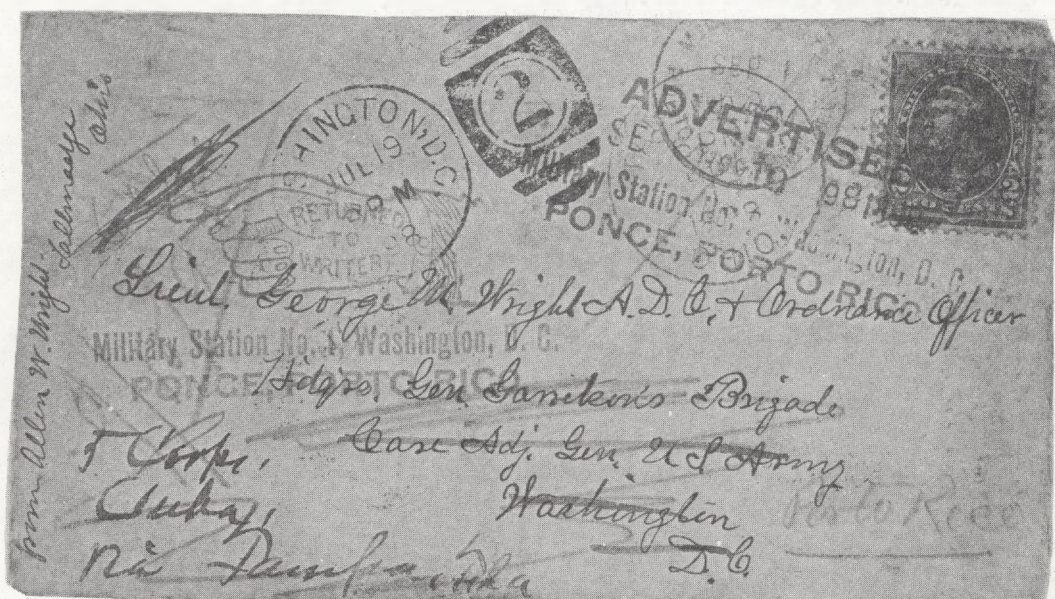 from Allen W. Wright
Tallmadge
Ohio
WASHINGTON, D.C.
JUL 19
PM
2
ADVERTISED
SEP 1
98
Military Station No. 1, Washington, D. C.
PONCE, PORTO RICO
RETURNED
TO
WRITER
Lieut. George M. Wright A.D.C. + Ordnance Officer
Military Station No. 1, Washington, D. C.
PONCE, PORTO RICO
Hdqrs. Gen. Garretson's Brigade
Care Adj. Gen. U S Army
Washington
D.C.
5 Corps,
Cuba,
via Tampa, Fla
Porto Rico